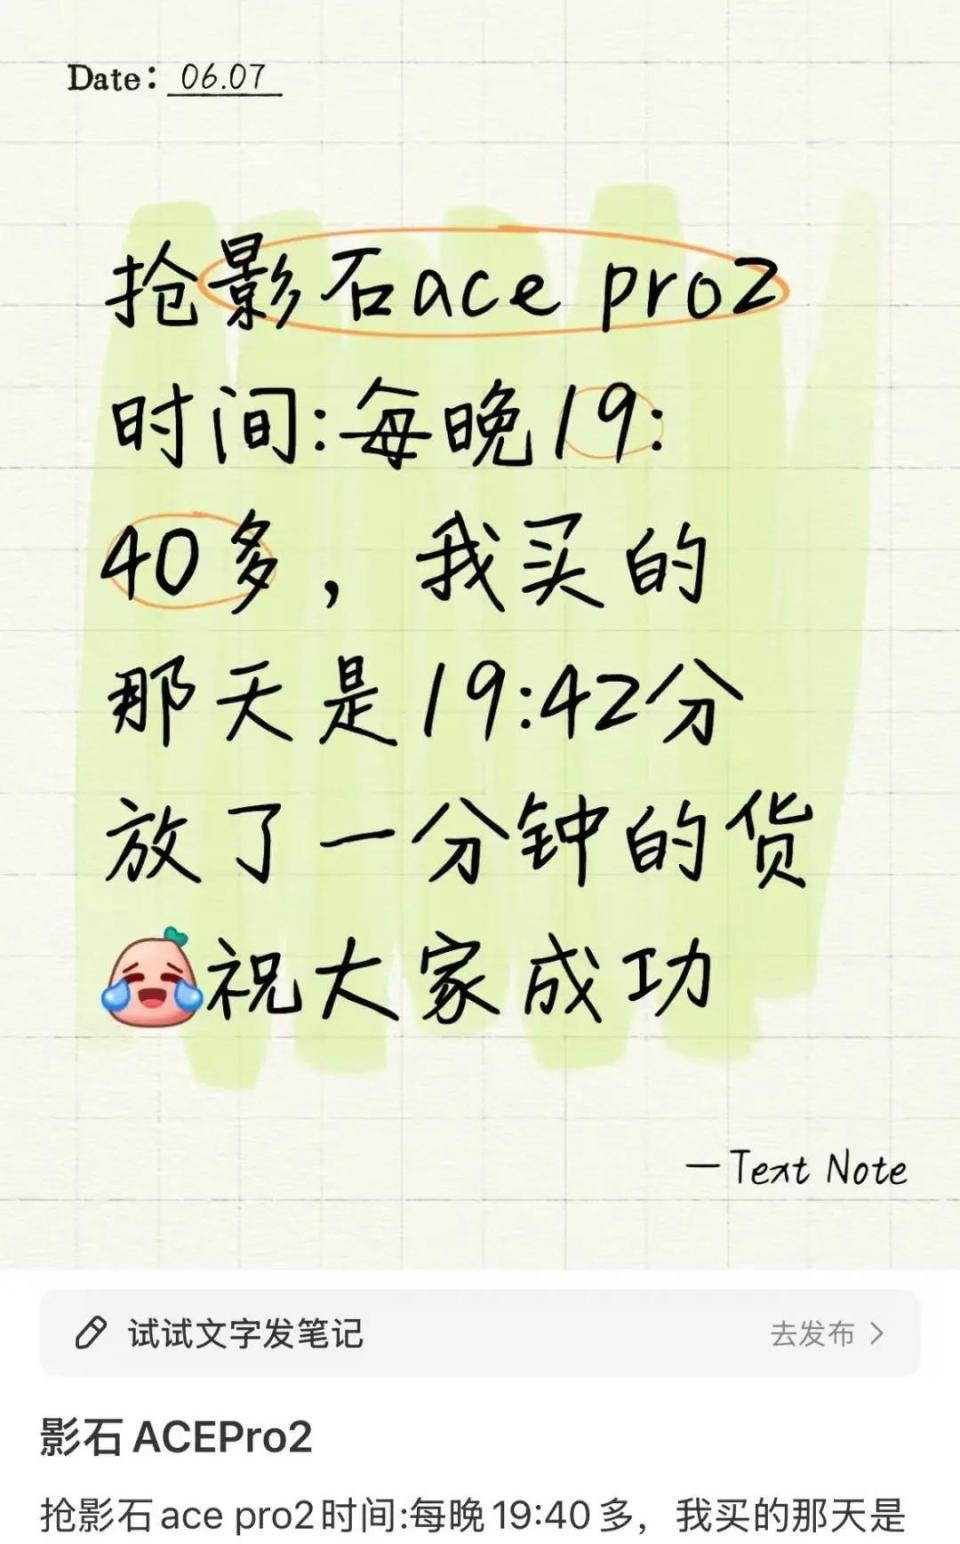 Date: 06.07
抢影石ace pro2
时间:每晚19:
40多，我买的
那天是19:42分
放了一分钟的货
祝大家成功
—Text Note
试试文字发笔记 去发布
影石ACEPro2
抢影石ace pro2时间:每晚19:40多，我买的那天是